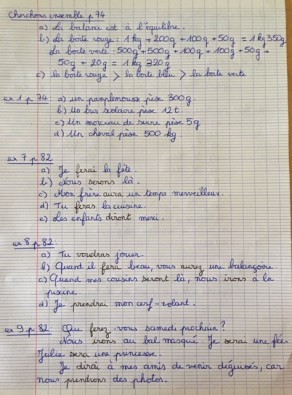 Cherchons ensemble p 74
a) La balance est à l'équilibre.
b) La boîte rouge : 1 kg + 200g + 100g + 50g = 1 kg 350g
La boîte verte : 500g + 500g + 100g + 100g + 50g +
50g + 20g = 1 kg 320g
c) la boîte rouge > la boîte bleu > la boîte verte
ex 1 p 74 : a) un pamplemousse pèse 300g.
b) Un bus scolaire pèse 12 t.
c) Un morceau de sucre pèse 5g
d) Un cheval pèse 500 kg
ex 7 p 82
a) Je ferai la fête.
b) Nous serons là.
c) Mon frère aura un temps merveilleux.
d) Tu feras la cuisine.
e) Les enfants diront merci.
ex 8 p 82
a) Tu voudras jouer.
b) Quand il fera beau, vous aurez une balançoire.
c) Quand mes cousins seront là, nous irons à la
piscine.
d) Je prendrai mon cerf-volant.
ex 9 p 82 Que ferez-vous samedi prochain ?
Nous irons au bal masqué. Je serai une fée.
Julie sera une princesse.
Je dirai à mes amis de venir déguisés, car
nous prendrons des photos.